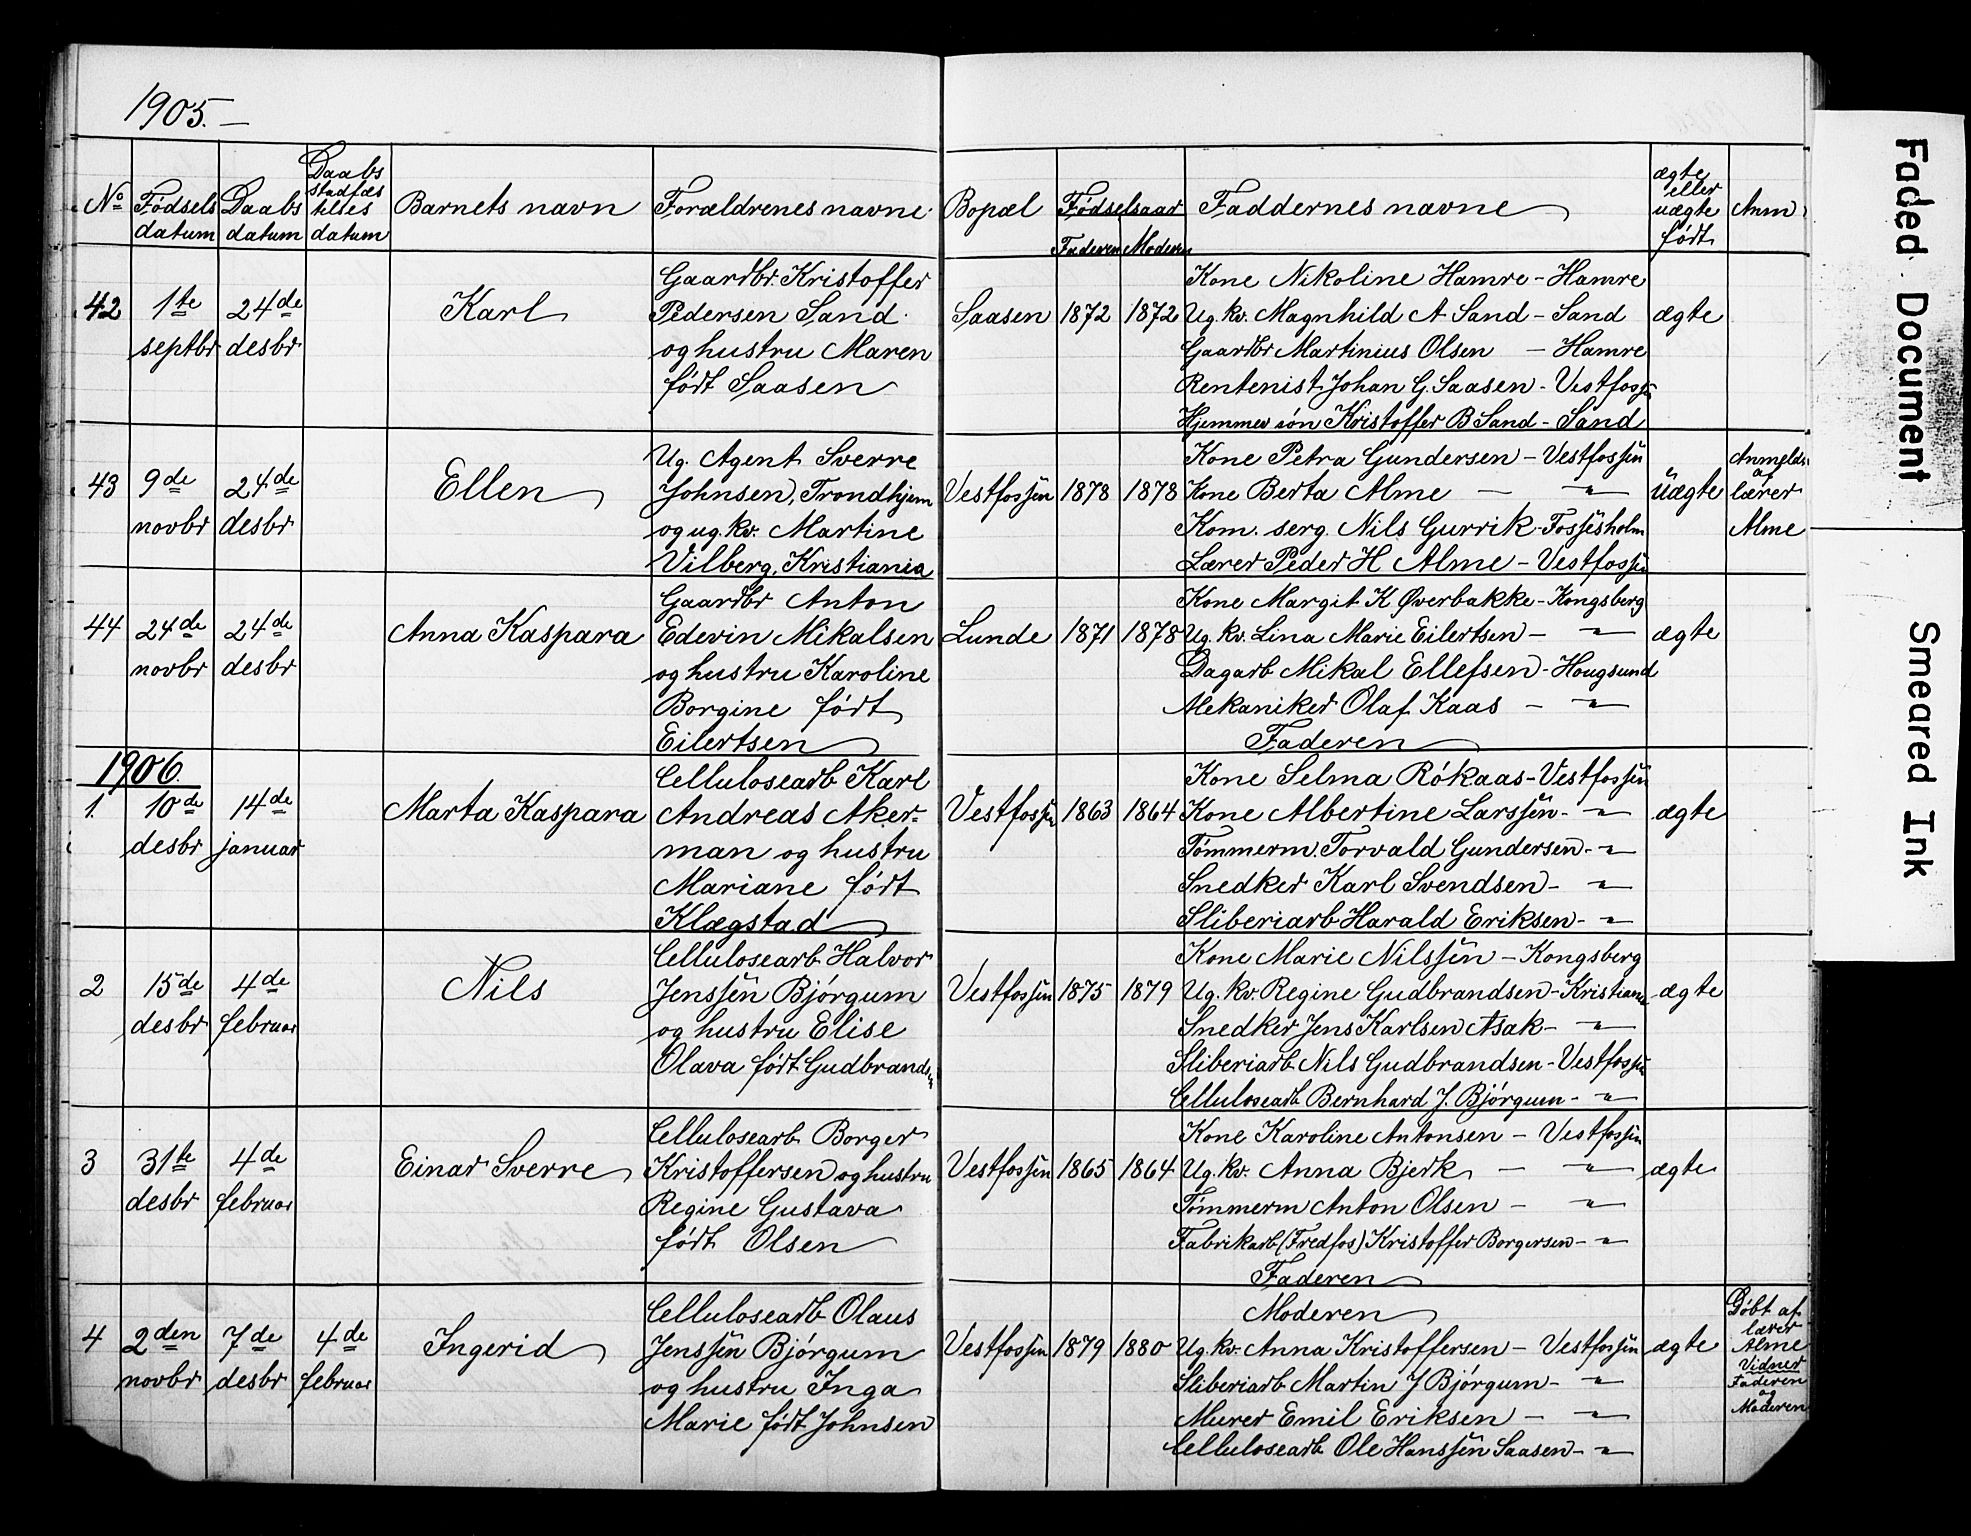 1905.
No Fødsels datum Daabs datum Daabs stadfæs telses datum Barnets navn Forældrenes navne. Bopæl Fødselsaar Faderen Moderen Faddernes navne ægte eller uægte født Anm
Gaardbr. Kristoffer Kone Nikoline Hamre - Hamre
42 1ste 24de Karl Pedersen Sand. Saasen 1872 1872 Ug. kv. Magnhild A Sand - Sand ægte
septbr desbr og hustru Maren Gaardbr Martinius Olsen - Hamre
født Saasen Rentenist Johan G. Saasen - Vestfossen
Hjemmev søn Kristoffer B Sand - Sand
Ug. Agent Sverre Kone Petra Gundersen - Vestfossen Anmeldt
43 9de 24de Ellen Johnsen, Trondhjem Vestfossen 1878 1878 Kone Berta Alme - " uægte af lærer
novbr desbr og ug. kv. Martine Kom. serg. Nils Gurrik - Fossesholm Alme
Vilberg, Kristiania Lærer Peder H Alme - Vestfossen
Gaardbr Anton Kone Margit K Øverbakke - Kongsberg
44 24de 24de Anna Kaspara Edevin Mikalsen Lunde 1871 1878 Ug. kv. Lina Marie Eilertsen - " ægte
novbr desbr og hustru Karoline Dagarb Mikal Ellefsen - Hougsund
Borgine født Mekaniker Olaf Kaas - "
Eilertsen Faderen
1906.
Cellulosearb Karl Kone Selma Rökaas - Vestfossen
1. 10de 14de Marta Kaspara Andreas Aker- Vestfossen 1863 1864 Kone Albertine Larssen - " ægte
desbr januar man og hustru Tömmerm. Torvald Gundersen - "
Mariane født Snedker Karl Svendsen - "
Klægstad Sliberiarb Harald Eriksen - "
Cellulosearb Halvor Kone Marie Nilssen - Kongsberg
2 15de 4de Nils Jenssen Björgum Vestfossen 1875 1879 Ug. kv. Regine Gudbrandsen - Kristiania ægte
desbr februar og hustru Elise Snedker Jens Karlsen Asak - "
Olava født Gudbrandsen Sliberiarb Nils Gudbrandsen - Vestfossen
Cellulosearb Bernhard J. Björgum - "
Cellulosearb Borger Kone Karoline Antonsen - Vestfossen
3 31te 4de Einar Sverre Kristoffersen og hustru Vestfossen 1865 1864 Ug. kv. Anna Bjerk - " ægte
desbr februar Regine Gustava Tömmerm Anton Olsen - "
født Olsen Fabrikarb (Fredfos) Kristoffer Borgersen - "
Faderen
Cellulosearb Olaus Moderen Döbt af lærer
4 2den 7de 4de Ingerid Jenssen Björgum Vestfossen 1879 1880 Ug. kv. Anna Kristoffersen - Vestfossen ægte Alme Vidner
novbr desbr februar og hustru Inga Sliberiarb Martin J Björgum - " Faderen og
Marie født Johnsen Murer Emil Eriksen - " Moderen
Cellulosearb Ole Hanssen Saasen - "
Faded Document
Smeared Ink